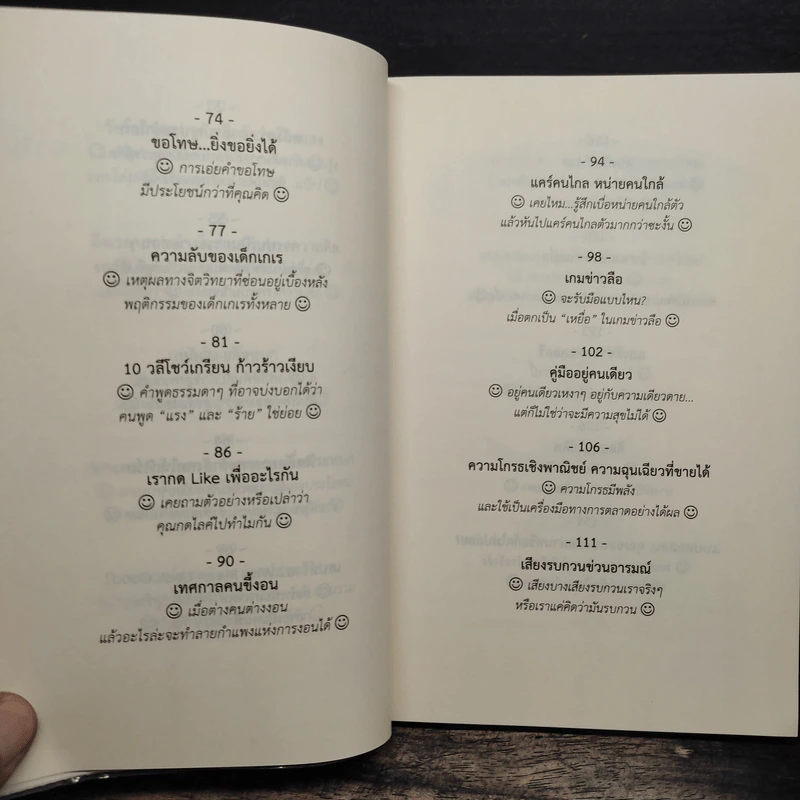 - 74 -
ขอโทษ...ยิ่งขอยิ่งได้
☺ การเอ่ยคำขอโทษ
มีประโยชน์กว่าที่คุณคิด ☺
- 77 -
ความลับของเด็กเกเร
☺ เหตุผลทางจิตวิทยาที่ซ่อนอยู่เบื้องหลัง
พฤติกรรมของเด็กเกเรทั้งหลาย ☺
- 81 -
10 วลีโชว์เกรียน ก้าวร้าวเงียบ
☺ คำพูดธรรมดาๆ ที่อาจบ่งบอกได้ว่า
คนพูด “แรง” และ “ร้าย” ใช่ย่อย ☺
- 86 -
เรากด Like เพื่ออะไรกัน
☺ เคยถามตัวเองหรือเปล่าว่า
คุณกดไลค์ไปทำไมกัน ☺
- 90 -
เทศกาลคนขี้งอน
☺ เมื่อต่างคนต่างงอน
แล้วอะไรล่ะจะทำลายกำแพงแห่งการงอนได้ ☺
- 94 -
แคร์คนไกล หน่ายคนใกล้
☺ เคยไหม...รู้สึกเบื่อหน่ายคนใกล้ตัว
แล้วหันไปแคร์คนไกลตัวมากกว่าซะงั้น ☺
- 98 -
เกมข่าวลือ
☺ จะรับมือแบบไหน?
เมื่อตกเป็น “เหยื่อ” ในเกมข่าวลือ ☺
- 102 -
คู่มืออยู่คนเดียว
☺ อยู่คนเดียวเหงาๆ อยู่กับความเดียวดาย...
แต่ก็ไม่ใช่ว่าจะมีความสุขไม่ได้ ☺
- 106 -
ความโกรธเชิงพาณิชย์ ความฉุนเฉียวที่ขายได้
☺ ความโกรธมีพลัง
และใช้เป็นเครื่องมือทางการตลาดอย่างได้ผล ☺
- 111 -
เสียงรบกวนข่วนอารมณ์
☺ เสียงบางเสียงรบกวนเราจริงๆ
หรือเราแค่คิดว่ามันรบกวน ☺